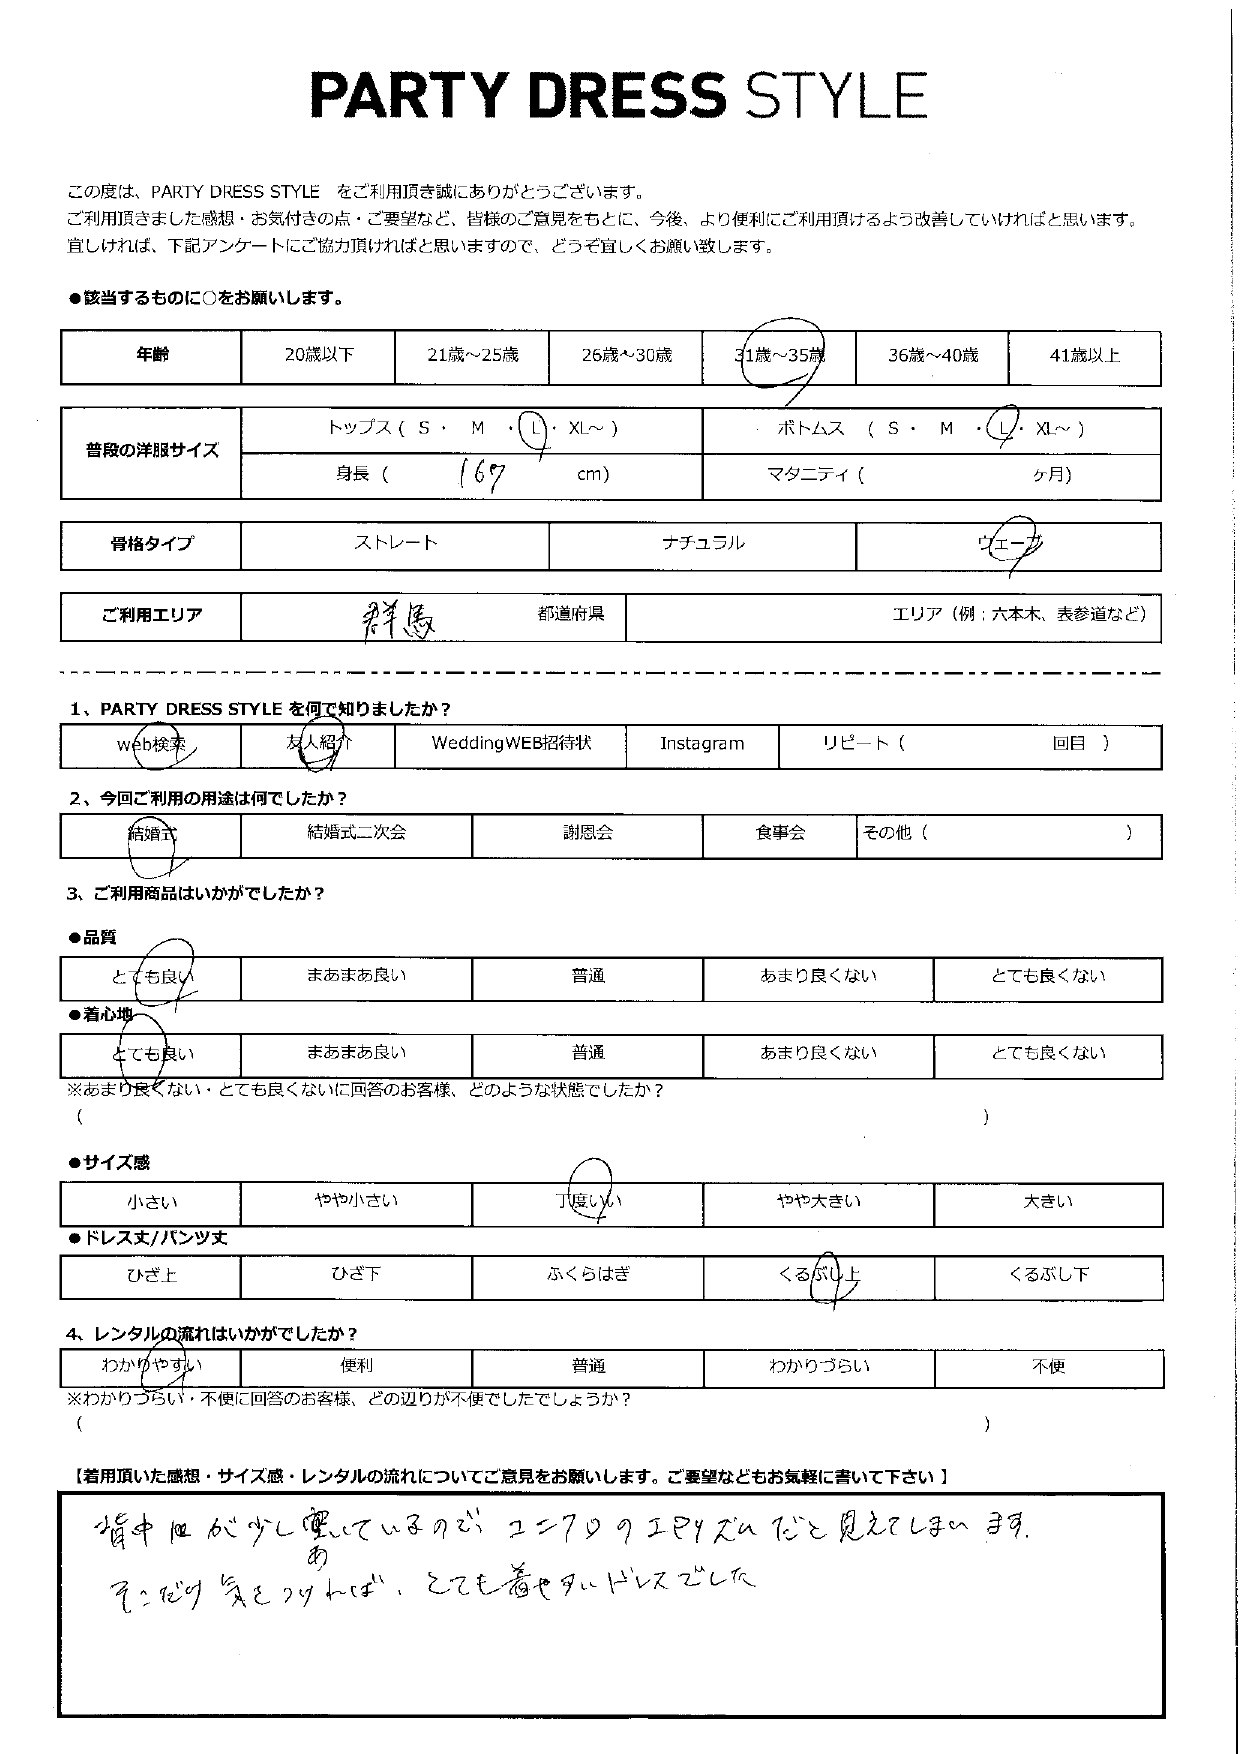 PARTY DRESS STYLE
この度は、PARTY DRESS STYLE をご利用頂き誠にありがとうございます。
ご利用頂きました感想・お気付きの点・ご要望など、皆様のご意見をもとに、今後、より便利にご利用頂けるよう改善していければと思います。
宜しければ、下記アンケートにご協力頂ければと思いますので、どうぞ宜しくお願い致します。
●該当するものに○をお願いします。
年齢 20歳以下 21歳～25歳 26歳～30歳 31歳～35歳 36歳～40歳 41歳以上
普段の洋服サイズ
トップス ( S ・ M ・ L ・ XL～ ) ボトムス ( S ・ M ・ L ・ XL～ )
身長 ( 167 cm) マタニティ ( ヶ月)
骨格タイプ ストレート ナチュラル ウェーブ
ご利用エリア 群馬 都道府県 エリア（例；六本木、表参道など）
1、PARTY DRESS STYLE を何で知りましたか？
web検索 友人紹介 WeddingWEB招待状 Instagram リピート ( 回目 )
2、今回ご利用の用途は何でしたか？
結婚式 結婚式二次会 謝恩会 食事会 その他 ( )
3、ご利用商品はいかがでしたか？
●品質
とても良い まあまあ良い 普通 あまり良くない とても良くない
●着心地
とても良い まあまあ良い 普通 あまり良くない とても良くない
※あまり良くない・とても良くないに回答のお客様、どのような状態でしたか？
( )
●サイズ感
小さい やや小さい 丁度いい やや大きい 大きい
●ドレス丈/パンツ丈
ひざ上 ひざ下 ふくらはぎ くるぶし上 くるぶし下
4、レンタルの流れはいかがでしたか？
わかりやすい 便利 普通 わかりづらい 不便
※わかりづらい・不便に回答のお客様、どの辺りが不便でしたでしょうか？
( )
【着用頂いた感想・サイズ感・レンタルの流れについてご意見をお願いします。ご要望などもお気軽に書いて下さい】
背中が少しいているので、だと見えてしまいます。
あ
そこだけ気をつければ、とても着やすいドレスでした